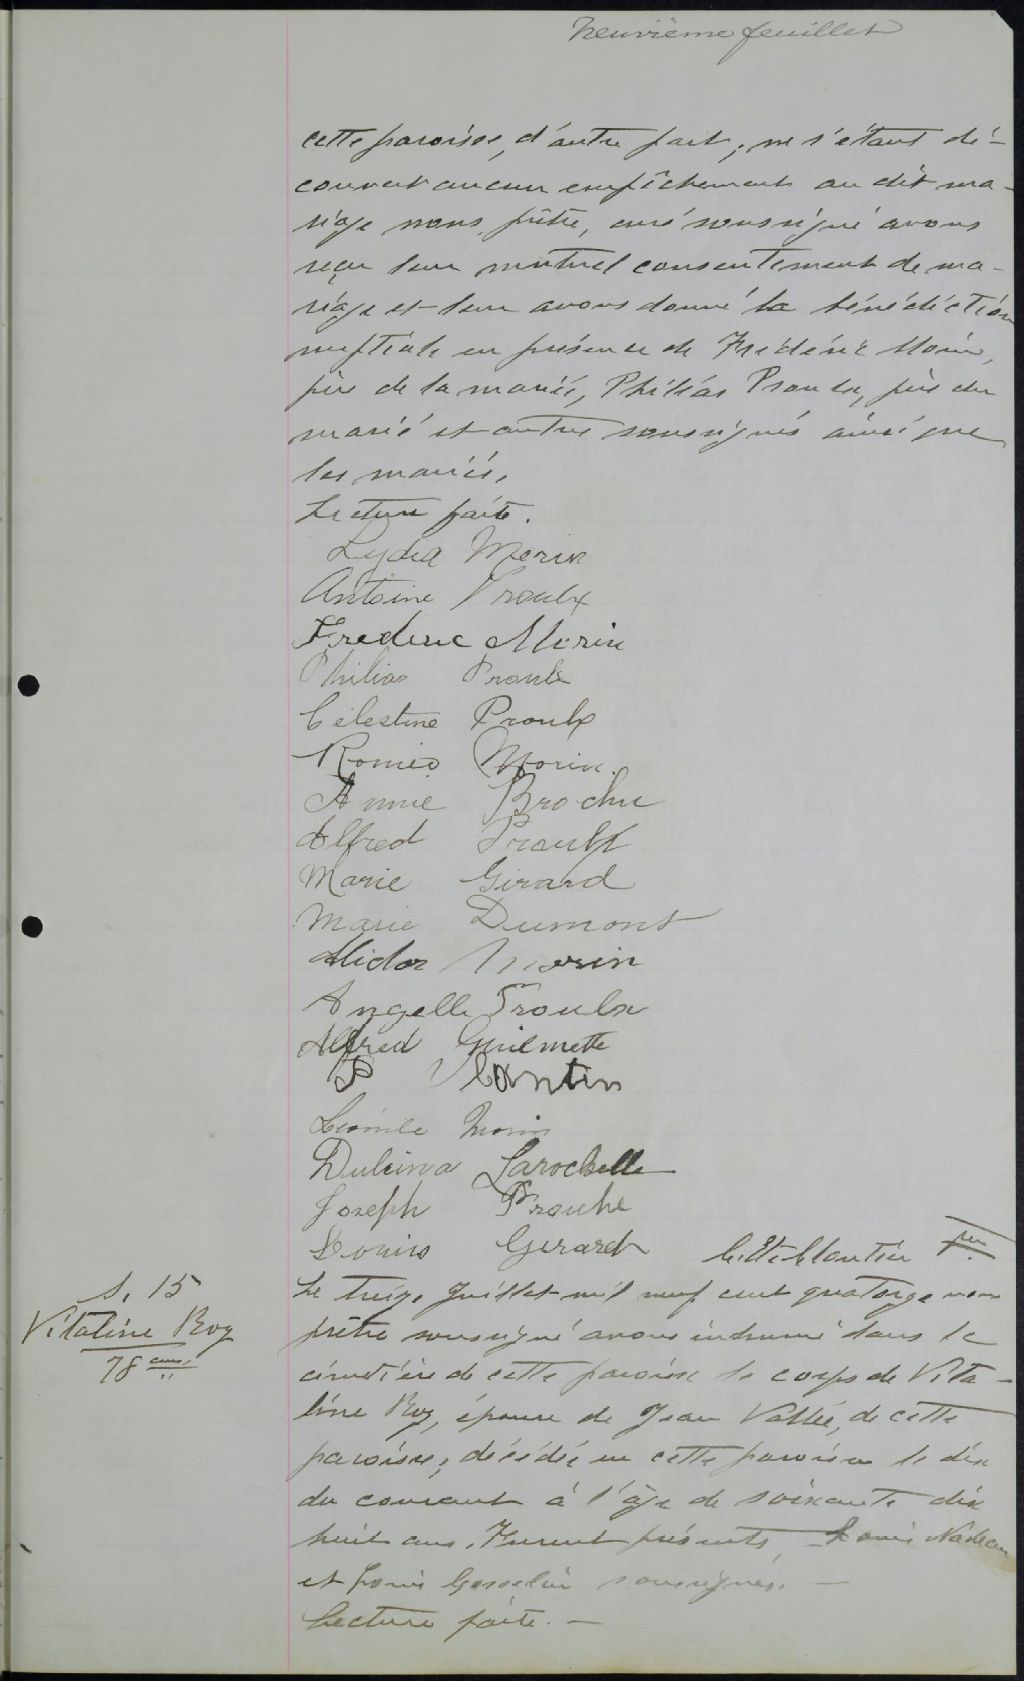 neuvième feuillet
cette paroisse, d'autre part; ne s'étant dé-
couvert aucun empêchement au dit ma-
riage nous, prêtre, curé soussigné avons
reçu leur mutuel consentement de ma-
riage et leur avons donné la bénédiction
nuptiale en présence de Frédéric Morin,
père de la mariée, Philias Proulx, père du
marié et autres soussignés ainsi que
les mariés.
Lecture faite.
Lydia Morin
Antoine Proulx
Frederic Morin
Philias Proulx
Célestine Proulx
Roméo Morin.
Annie Brochu
Alfred Proulx
Marie Girard
Marie Dumont
Alidor Morin
Angelle Proulx
Alfred Guilmette
P Plantin
Léonile Morin
Dulcina Larochelle
Joseph Proulx
Louis Gerard ptre
S. 15
Vitaline Roy
78 ans.
Le treize Juillet mil neuf cent quatorze nous
prêtre soussigné avons inhumé dans le
cimetière de cette paroisse le corps de Vita-
line Roy, épouse de Jean Vallée, de cette
paroisse, décédée en cette paroisse le dix
du courant à l'âge de soixante dix
huit ans. Furent présents Louis Nadeau
et Louis Gosselin soussignés. —
Lecture faite. —